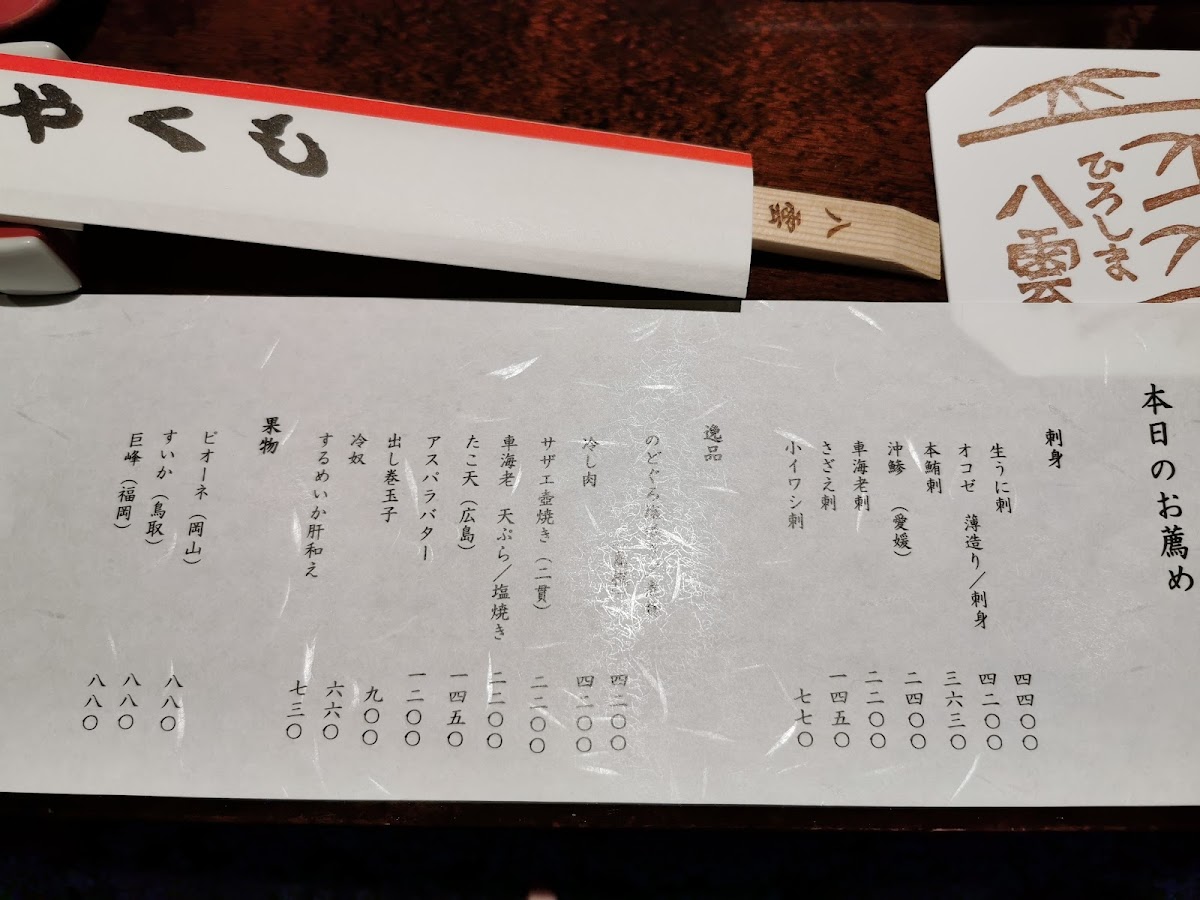 やくも
八雲
ひろしま
八雲
本日のお薦め
刺身
生うに刺 四四〇〇
オコゼ 薄造り／刺身 四二〇〇
本鮪刺 三六三〇
沖鯵（愛媛） 二四〇〇
車海老刺 二二〇〇
さざえ刺 一四五〇
小イワシ刺 七七〇
逸品
のどぐろ 四二〇〇
冷し肉 四二〇〇
サザエ壺焼き（二貫） 二二〇〇
車海老 天ぷら／塩焼き 二二〇〇
たこ天（広島） 一四五〇
アスパラバター 一二〇〇
出し巻玉子 九〇〇
冷奴 六六〇
するめいか肝和え 七三〇
果物
ピオーネ（岡山） 八八〇
すいか（鳥取） 八八〇
巨峰（福岡） 八八〇